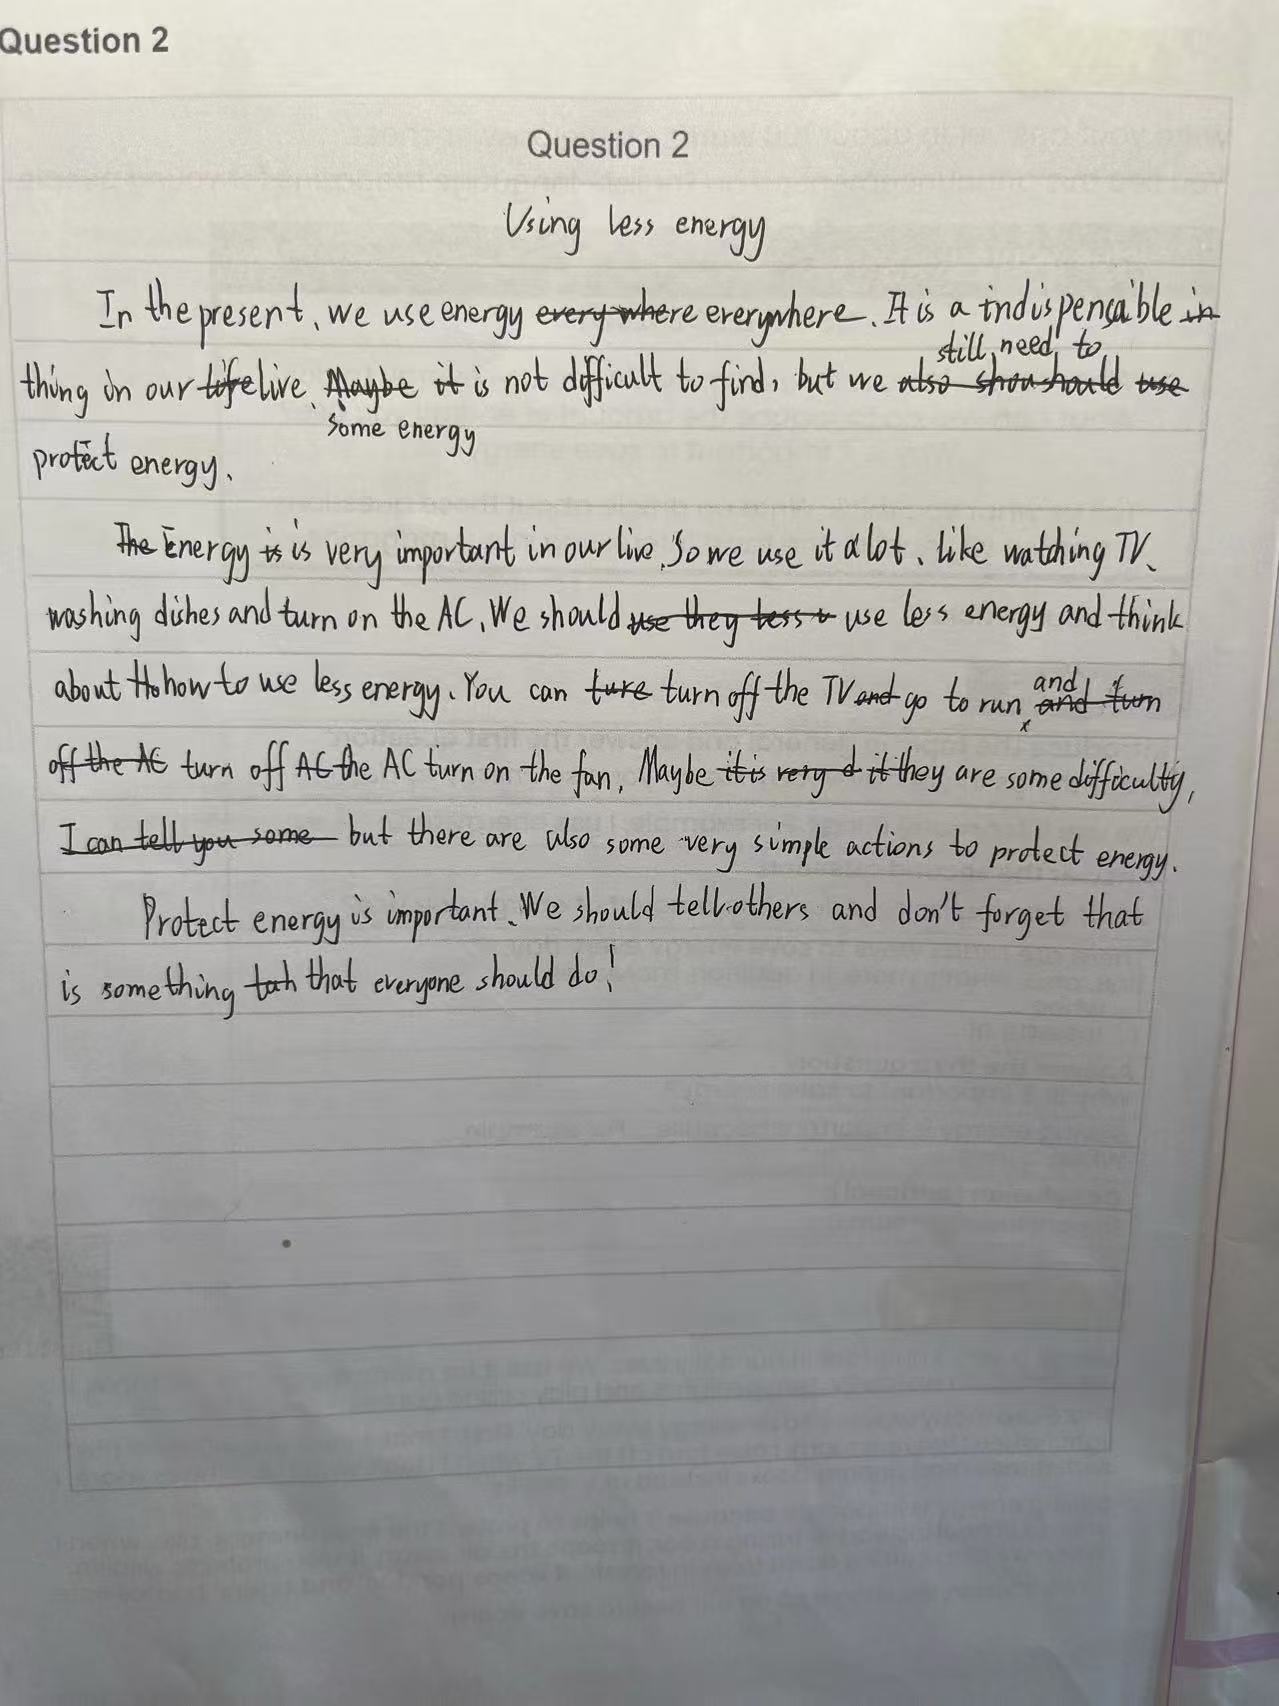 Question 2
Question 2
Using less energy
In the present, we use energy every where everywhere. It is a indispensable in
still need to
thing in our life live. Maybe it is not difficult to find, but we also shou should use
some energy
protect energy.
The Energy is is very important in our live. So we use it a lot, like watching TV,
washing dishes and turn on the AC. We should use they less use less energy and think
about how to use less energy. You can ture turn off the TV and go to run and and turn
off the AC turn off AC the AC turn on the fan. Maybe it is very d it they are some difficulty,
I can tell you some but there are also some very simple actions to protect energy.
Protect energy is important. We should tell others and don't forget that
is something tah that everyone should do!